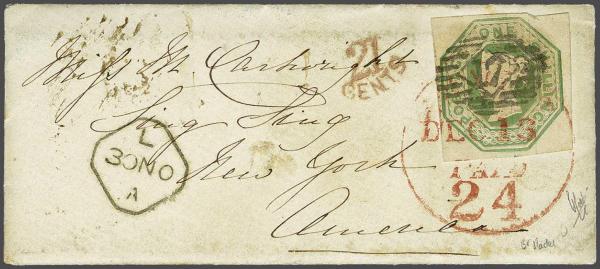 21
CENTS
ONE
Miss M Cartwright
Sing Sing
New York
America
L
30NO
A
DEC 13
PAID
24